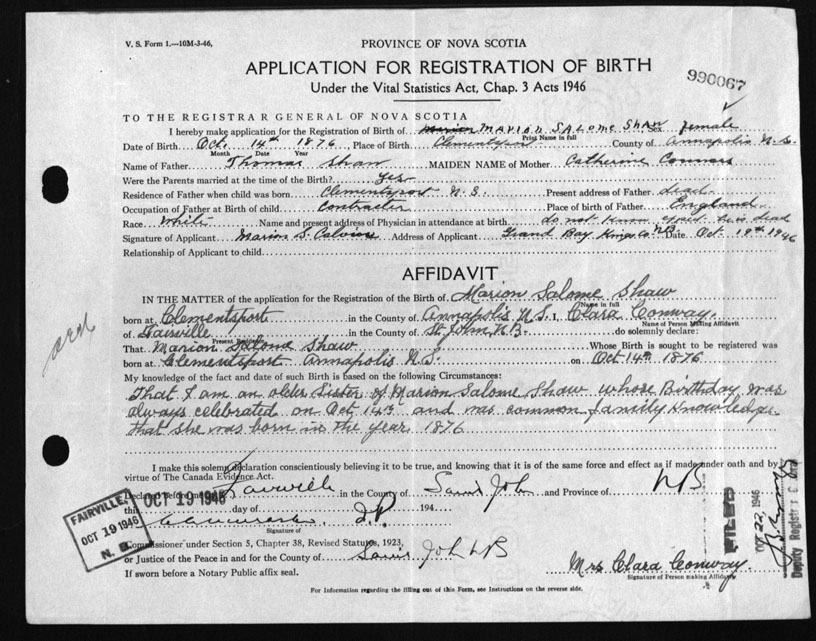 V. S. Form 1.—10M-3-46,
PROVINCE OF NOVA SCOTIA
APPLICATION FOR REGISTRATION OF BIRTH
Under the Vital Statistics Act, Chap. 3 Acts 1946
990067
TO THE REGISTRAR GENERAL OF NOVA SCOTIA
I hereby make application for the Registration of Birth of Marion Marion Salome Shaw Sex female
Print Name in full
Date of Birth Oct. 14th 1876, Place of Birth Clementsport County of Annapolis N.S.
Month Date Year
Name of Father Thomas Shaw MAIDEN NAME of Mother Catherine Connors
Were the Parents married at the time of Birth? Yes
Residence of Father when child was born Clementsport N.S. Present address of Father dead
Occupation of Father at Birth of child Contractor Place of birth of Father England
Race White Name and present address of Physician in attendance at birth do not know expect he is dead
Signature of Applicant Marion S. Address of Applicant Grand Bay Kings Co. NB Date Oct 19th 1946
Relationship of Applicant to child
AFFIDAVIT
IN THE MATTER of the application for the Registration of the Birth of Marion Salome Shaw
Name in full
born at Clementsport in the County of Annapolis N.S. I, Clara Conway
Name of Person Making Affidavit
of Fairville in the County of St John N.B. do solemnly declare:
Present Residence
That Marion Salome Shaw Whose Birth is sought to be registered was
born at Clementsport Annapolis N.S. on Oct 14th 1876
My knowledge of the fact and date of such Birth is based on the following Circumstances:
That I am an older Sister of Marion Salome Shaw whose Birthday was
always celebrated on Oct 14th and was common family knowledge
that she was born in the year 1876
I make this solemn declaration conscientiously believing it to be true, and knowing that it is of the same force and effect as if made under oath and by
virtue of The Canada Evidence Act.
Declared before me at Fairville in the County of Saint John and Province of NB
this OCT 19 1946 day of 194
J.P.
Signature of
FAIRVILLE,
OCT 19 1946
N. B.
Commissioner under Section 5, Chapter 38, Revised Statutes, 1923,
or Justice of the Peace in and for the County of Saint John NB
If sworn before a Notary Public affix seal.
Mrs Clara Conway
Signature of Person making Affidavit
FILED
OCT 22, 1946
Deputy Registrar
For Information regarding the filling out of this Form, see Instructions on the reverse side.